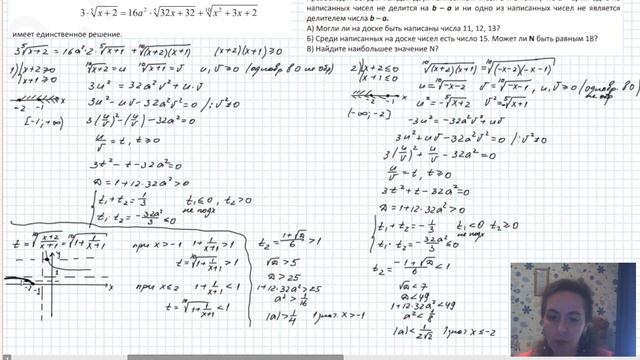 3 · ⁵√x+2 = 16a² · ⁵√32x+32 + ¹⁰√x²+3x+2
имеет единственное решение.
написанных чисел не делится на b – a и ни одно из написанных чисел не является
делителем числа b – a.
А) Могли ли на доске быть написаны числа 11, 12, 13?
Б) Среди написанных на доске чисел есть число 15. Может ли N быть равным 18?
В) Найдите наибольшее значение N?
3 ⁵√x+2 = 16a²·2 ⁵√x+1 + ¹⁰√(x+2)(x+1)   (x+2)(x+1)≥0
1) {x+2≥0
x+1≥0
¹⁰√x+2 = u   ¹⁰√x+1 = v   u,v≥0
3u² = 32a²v² + u·v
3u² - uv - 32a²v² = 0 /:v²≠0
-2 -1 x
[-1;+∞)
3(u/v)² - (u/v) - 32a² = 0
u/v = t, t≥0
3t² - t - 32a² = 0
D = 1+12·32a² > 0
{t₁+t₂ = 1/3
t₁·t₂ = -32a²/3 ≤ 0
t₁≤0, t₂>0
не подх
t = ¹⁰√x+2/x+1 = ¹⁰√1+1/x+1
при x>-1   1+1/x+1 > 1
t = ¹⁰√1+1/x+1 > 1
при x≤-2   1+1/x+1 < 1
t = ¹⁰√1+1/x+1 < 1
t₂ = 1+√D/6 > 1
√D > 5
D > 25
1+12·32a² > 25
a² > 1/16
|a| > 1/4   x>-1
2) {x+2≤0
x+1≤0
-2 -1 x
(-∞;-2]
¹⁰√(x+2)(x+1) = ¹⁰√(-x-2)(-x-1)
u = ¹⁰√-x-2   v = ¹⁰√-x-1, u,v≥0
u² = -⁵√x+2   v² = -⁵√x+1
-3u² = -32a²v² + uv
3u² + uv - 32a²v² = 0 /:v²≠0
3(u/v)² + u/v - 32a² = 0
u/v = t, t≥0
3t² + t - 32a² = 0
D = 1+12·32a² > 0
{t₁+t₂ = -1/3
t₁·t₂ = -32a²/3 ≤ 0
t₁<0   t₂≥0
не подх
t₂ = -1+√D/6 < 1
√D < 7
D < 49
1+12·32a² < 49
a² < 1/8
|a| < 1/2√2   x≤-2